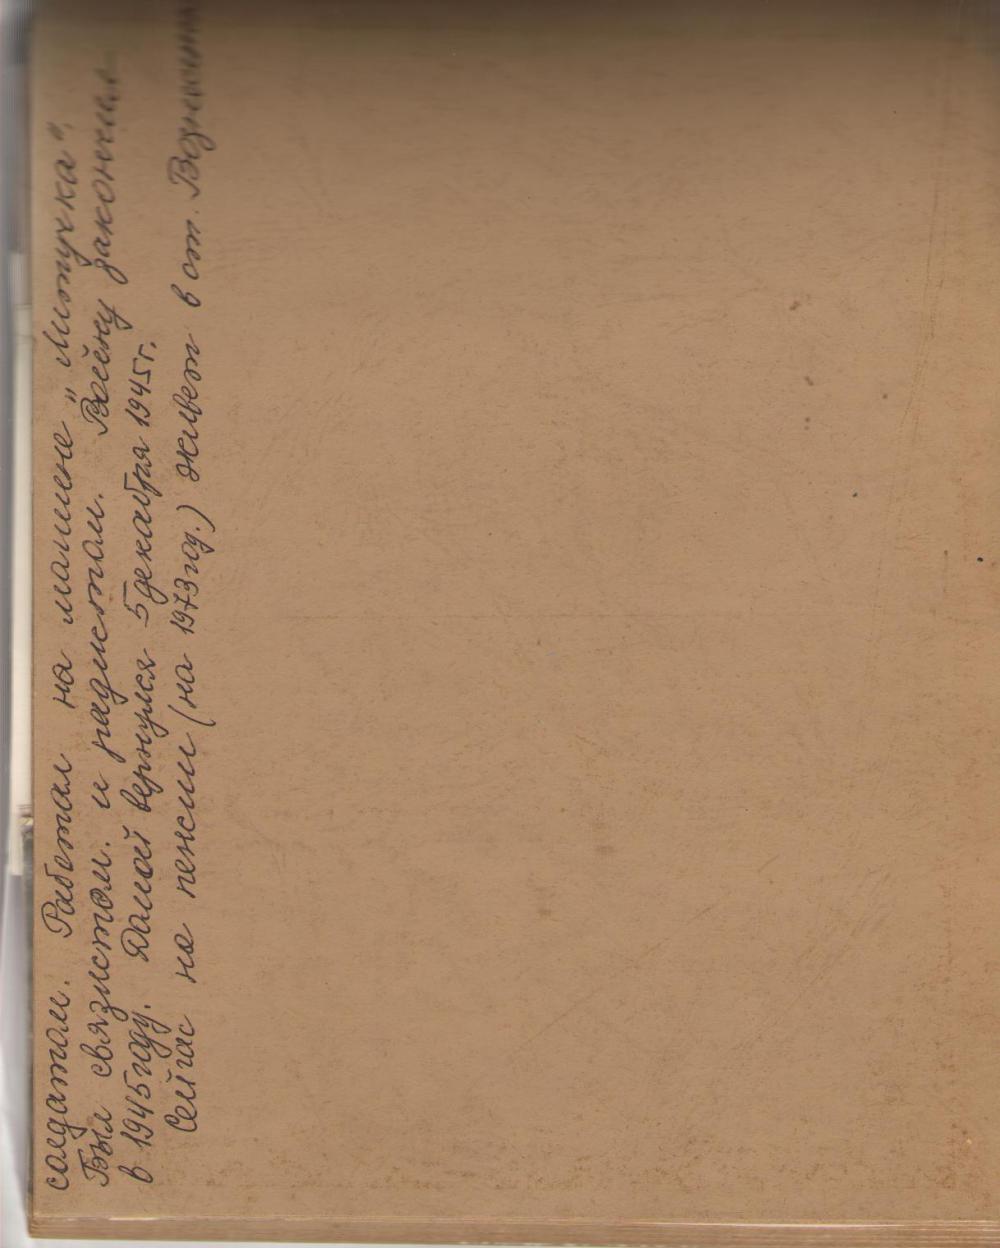 солдатом. Работал на машине „Литучка".
Был связистом. и радистом. Войну закончил
в 1945 году. Домой вернулся 5 декабря 1945 г.
Сейчас на пенсии (на 1973 год.) живет в ст.